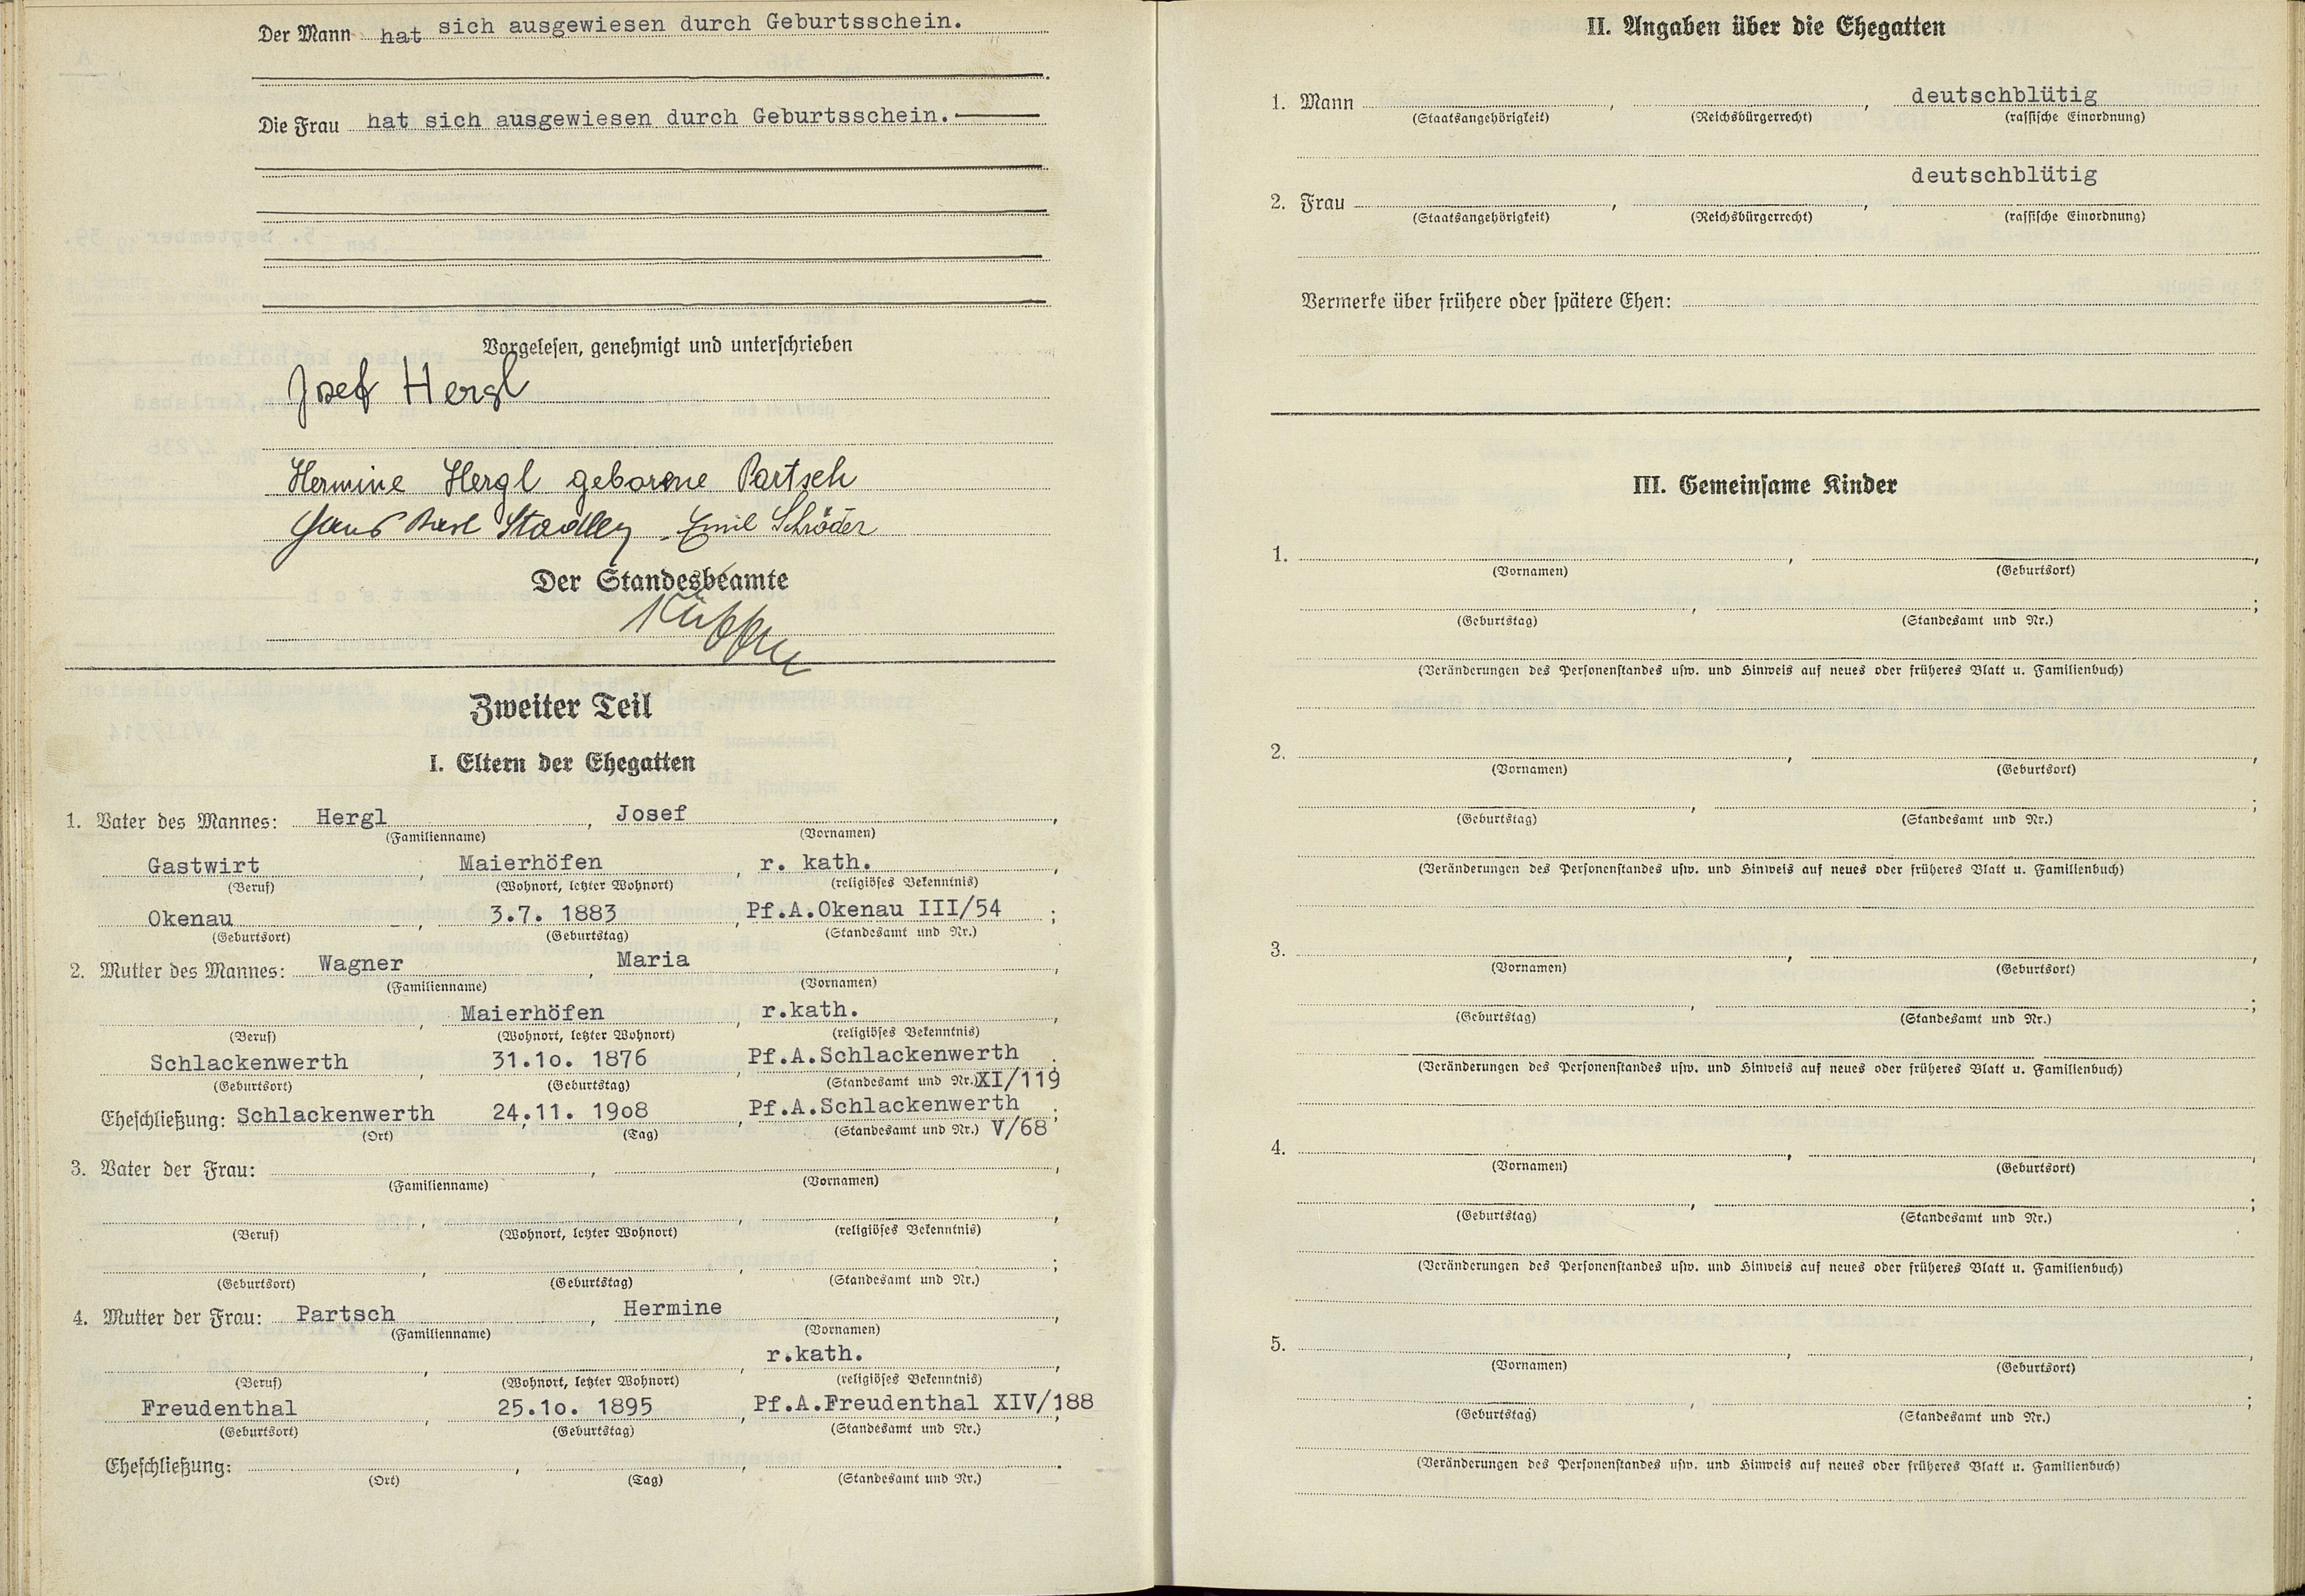 Der Mann hat sich ausgewiesen durch Geburtsschein.
Die Frau hat sich ausgewiesen durch Geburtsschein.
Vorgelesen, genehmigt und unterschrieben
Josef Hergl
Hermine Hergl geborene Partsch
Hans Karl Stadler Emil Schröder
Der Standesbeamte
Zweiter Teil
I. Eltern der Ehegatten
1. Vater des Mannes: Hergl, Josef,
(Familienname) (Vornamen)
Gastwirt, Maierhöfen, r. kath.,
(Beruf) (Wohnort, letzter Wohnort) (religiöses Bekenntnis)
Okenau, 3.7. 1883, Pf.A.Okenau III/54;
(Geburtsort) (Geburtstag) (Standesamt und Nr.)
2. Mutter des Mannes: Wagner, Maria,
(Familienname) (Vornamen)
, Maierhöfen, r.kath.,
(Beruf) (Wohnort, letzter Wohnort) (religiöses Bekenntnis)
Schlackenwerth, 31.1o. 1876, Pf.A.Schlackenwerth.
(Geburtsort) (Geburtstag) (Standesamt und Nr.) XI/119
Eheschließung: Schlackenwerth, 24.11. 19o8, Pf.A.Schlackenwerth;
(Ort) (Tag) (Standesamt und Nr.) V/68
3. Vater der Frau: , ,
(Familienname) (Vornamen)
, , ,
(Beruf) (Wohnort, letzter Wohnort) (religiöses Bekenntnis)
, , ;
(Geburtsort) (Geburtstag) (Standesamt und Nr.)
4. Mutter der Frau: Partsch, Hermine,
(Familienname) (Vornamen)
, , r.kath.,
(Beruf) (Wohnort, letzter Wohnort) (religiöses Bekenntnis)
Freudenthal, 25.1o. 1895, Pf.A.Freudenthal XIV/188
(Geburtsort) (Geburtstag) (Standesamt und Nr.)
Eheschließung: , , .
(Ort) (Tag) (Standesamt und Nr.)
II. Angaben über die Ehegatten
1. Mann , , deutschblütig
(Staatsangehörigkeit) (Reichsbürgerrecht) (rassische Einordnung)
deutschblütig
2. Frau , ,
(Staatsangehörigkeit) (Reichsbürgerrecht) (rassische Einordnung)
Vermerke über frühere oder spätere Ehen:
III. Gemeinsame Kinder
1. , ,
(Vornamen) (Geburtsort)
, ;
(Geburtstag) (Standesamt und Nr.)
(Veränderungen des Personenstandes usw. und Hinweis auf neues oder früheres Blatt u. Familienbuch)
2. , ,
(Vornamen) (Geburtsort)
, ;
(Geburtstag) (Standesamt und Nr.)
(Veränderungen des Personenstandes usw. und Hinweis auf neues oder früheres Blatt u. Familienbuch)
3. , ,
(Vornamen) (Geburtsort)
, ;
(Geburtstag) (Standesamt und Nr.)
(Veränderungen des Personenstandes usw. und Hinweis auf neues oder früheres Blatt u. Familienbuch)
4. , ,
(Vornamen) (Geburtsort)
, ;
(Geburtstag) (Standesamt und Nr.)
(Veränderungen des Personenstandes usw. und Hinweis auf neues oder früheres Blatt u. Familienbuch)
5. , ,
(Vornamen) (Geburtsort)
, ;
(Geburtstag) (Standesamt und Nr.)
(Veränderungen des Personenstandes usw. und Hinweis auf neues oder früheres Blatt u. Familienbuch)